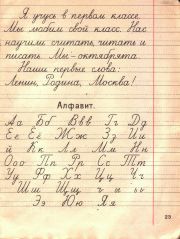 Я учусь в первом классе.
Мы любим свой класс. Нас
научили считать, читать и
писать. Мы – октябрята.
Наши первые слова:
Ленин, Родина, Москва!
Алфавит.
Аа Бб Вв Гг Дд
Ее Ёё Жж Зз Ии
й Кк Лл Мм Нн
Оо Пп Рр Сс Тт
Уу Фф Хх Цц Чч
Шш Щщ ъ ы ь
Ээ Юю Яя
23